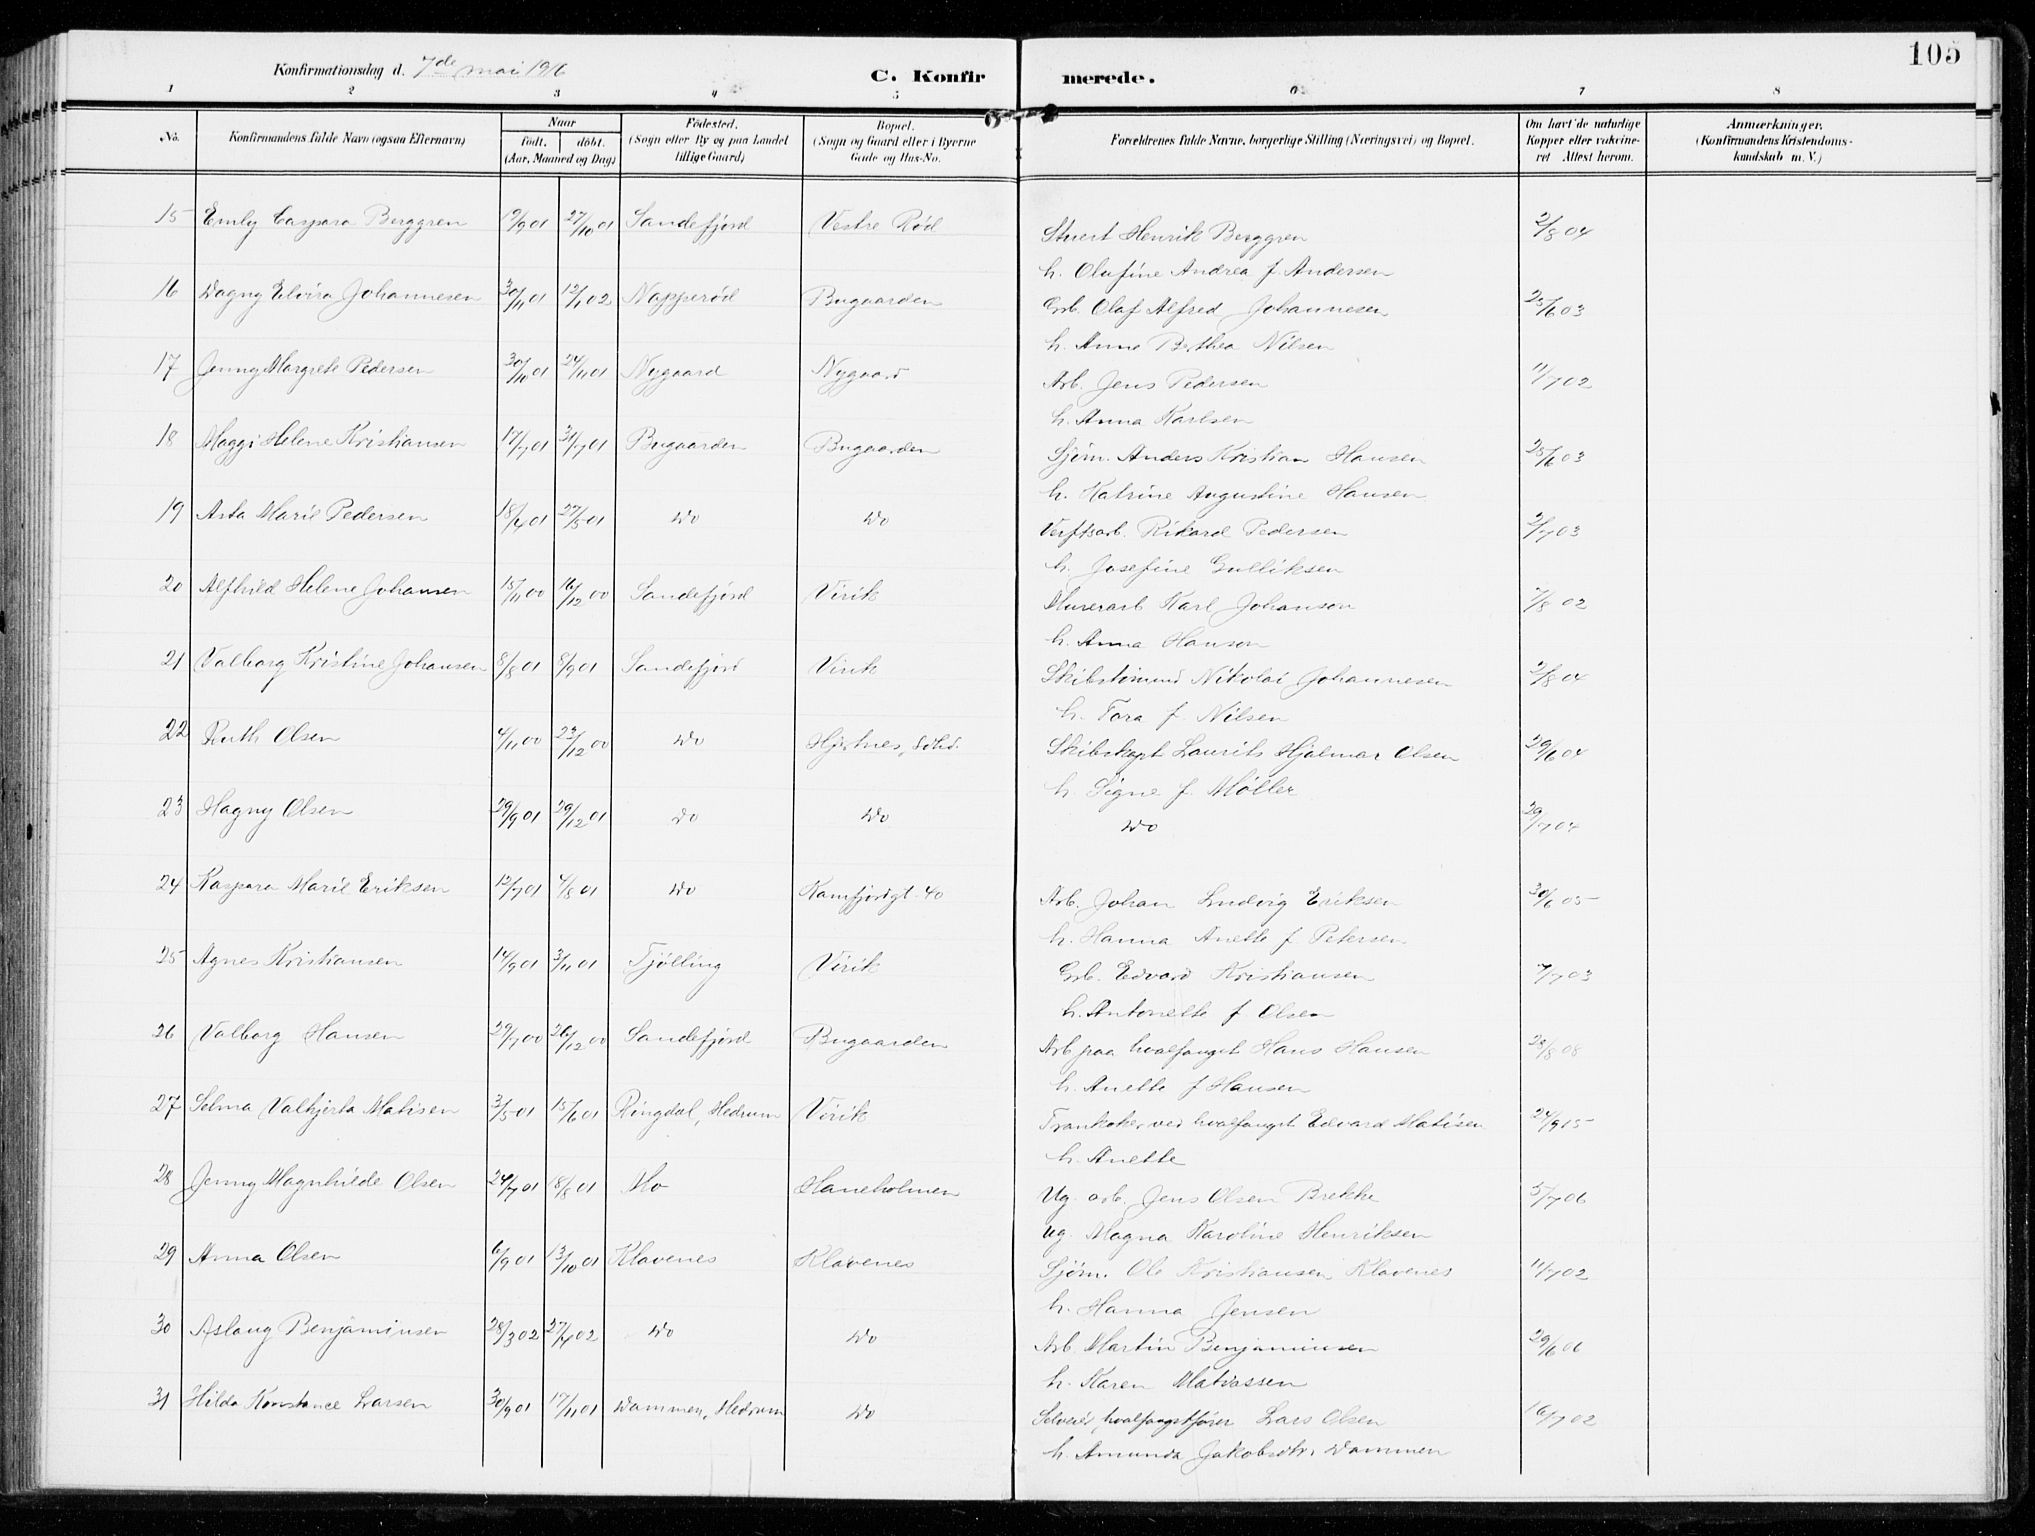 105
Konfirmationsdag d. 7de mai 1916
C. Konfirmerede.
1 2 3 4 5 6 7 8
No.
Konfirmandens fulde Navn (ogsaa Efternavn)
Naar
født. døbt.
(Aar, Maaned og Dag)
Fødested.
(Sogn eller By og paa Landet
tillige Gaard)
Bopæl.
(Sogn og Gaard eller i Byerne
Gade og Hus-No.
Forældrenes fulde Navne, borgerlige Stilling (Næringsvei) og Bopæl.
Om havt de naturlige
Kopper eller vakcine-
ret Attest herom.
Anmærkninger.
(Konfirmandens Kristendoms-
kundskab m. V.)
15 Emly Caspara Berggren 19/9 01 27/10 01 Sandefjord Vestre Rød Stuert Henrik Berggren 2/8 04
h. Olufine Andrea f. Andersen
16 Dagny Elvira Johannesen 30/11 01 12/1 02 Napperød Bugaarden Grb. Olaf Alfred Johannesen 25/6 03
h. Anne Berthea Nilsen
17 Jenny Margrete Pedersen 30/10 01 24/11 01 Nygaard Nygaard Arb. Jens Pedersen 11/7 02
h. Anna Karlsen
18 Maggi Helene Kristiansen 17/7 01 31/7 01 Bugaarden Bugaarden Sjøm. Anders Kristian Hansen 25/6 03
h. Katrine Augustine Hansen
19 Asta Marie Pedersen 18/4 01 27/5 01 Do Do Verftsarb. Rikard Pedersen 2/7 03
h. Josefine Gulliksen
20 Alfhild Helene Johansen 15/11 00 16/12 00 Sandefjord Virik Murerarb Karl Johanson 7/8 02
h. Anna Hanson
21 Valborg Kristine Johansen 8/8 01 8/9 01 Sandefjord Virik Skibstømmd Nikolai Johannesen 2/8 04
h. Tora f. Nilsen
22 Ruth Olsen 4/11 00 23/12 00 Do Hjertnes, Skibskapt Laurits Hjalmar Olsen 29/6 04
h. Signe f. Møller
23 Hagny Olsen 29/9 01 29/12 01 do Do Do 29/7 04
24 Kaspara Marie Eriksen 12/7 01 4/8 01 Do Kamfjordgt. 40 Arb. Johan Ludvig Eriksen 30/6 05
h. Hanna Anette f Petersen
25 Agnes Kristiansen 14/9 01 3/11 01 Tjølling Virik Grb. Edvard Kristiansen 7/7 03
h. Antonette f Olsen
26 Valborg Hansen 29/7 00 26/12 00 Sandefjord Bugaarden Arb paa hvalfanget Hans Hansen 28/8 08
h. Anette f Hansen
27 Selma Valkjerta Matisen 3/5 01 15/6 01 Ringdal, Hedrum Virik Trankoker ved hvalfanget Edvard Matisen 24/9 15
h. Anette
28 Jenny Magnhilde Olsen 24/7 01 18/8 01 Mo Haneholmen Ug. arb. Jens Olsen Brekke 5/7 06
Ug Magna Karoline Henriksen
29 Anna Olsen 6/9 01 13/10 01 Klavenes Klavenes Sjøm. Ole Kristiansen Klavenes 11/7 02
h. Hanna Jensen
30 Aslaug Benjaminsen 28/3 02 27/4 02 Do Do Arb. Martin Benjaminsen 29/6 06
h. Karen Matiassen
31 Hilda Konstance Larsen 30/9 01 17/11 01 Dammen, Hedrum Do Selveier, hvalfangstfører Lars Olsen 16/7 02
h. Amunda Jakobsdtr. Dammen